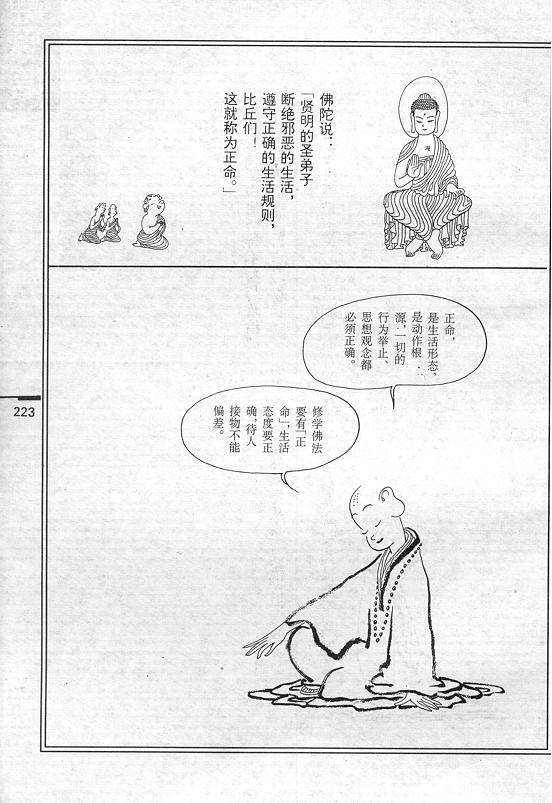 佛陀说：
「贤明的圣弟子
断绝邪恶的生活，
遵守正确的生活规则，
比丘们！
这就称为正命。」
正命，
是生活形态，
是动作根
源，一切的
行为举止、
思想观念都
必须正确。
修学佛法
要有「正
命」，生活
态度要正
确，待人
接物不能
偏差。
223